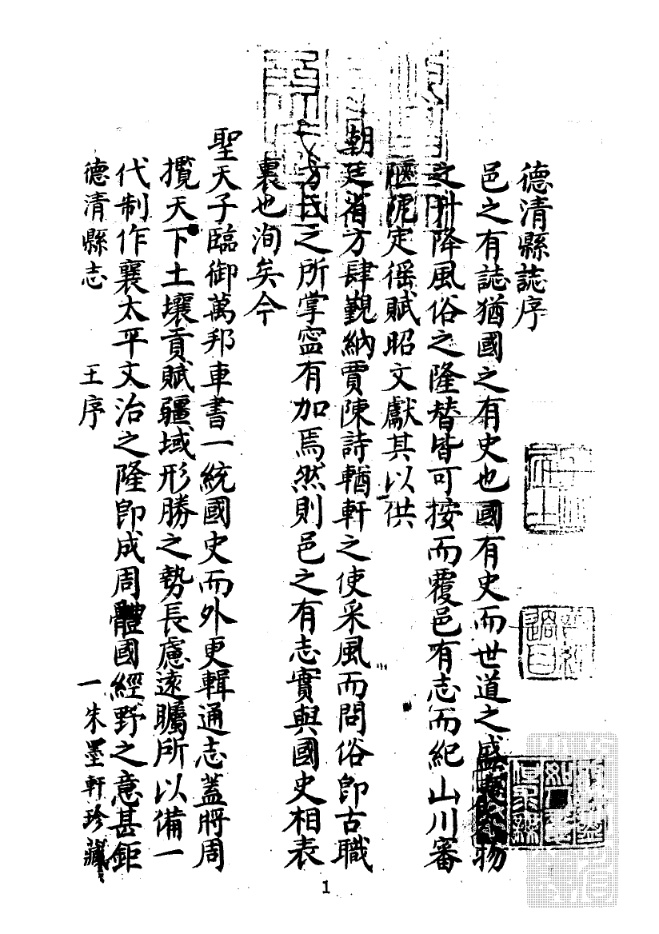 德清縣誌序
邑之有誌猶國之有史也國有史而世道之盛物
之升降風俗之隆替皆可按而覆邑有志而紀山川審
阨定徭賦昭文獻其以供
朝廷省方肆覲納賈陳詩輶軒之使采風而問俗即古職
方氏之所掌寧有加焉然則邑之有志實與國史相表
裏也洵矣今
聖天子臨御萬邦車書一統國史而外更輯通志蓋將周
攬天下土壤貢賦疆域形勝之勢長慮遠矚所以備一
代制作襄太平文治之隆即成周體國經野之意甚鉅
德清縣志 王序 一 朱墨軒珍藏
1